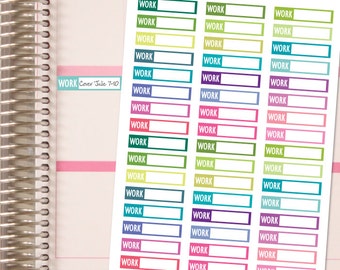 WORK WORK WORK
WORK WORK WORK
WORK WORK WORK
WORK WORK WORK
WORK WORK WORK
WORK Cover Julie 7-10 WORK WORK WORK
WORK WORK WORK
WORK WORK WORK
WORK WORK WORK
WORK WORK WORK
WORK WORK WORK
WORK WORK WORK
WORK WORK WORK
WORK WORK WORK
WORK WORK WORK
WORK WORK WORK
WORK WORK WORK